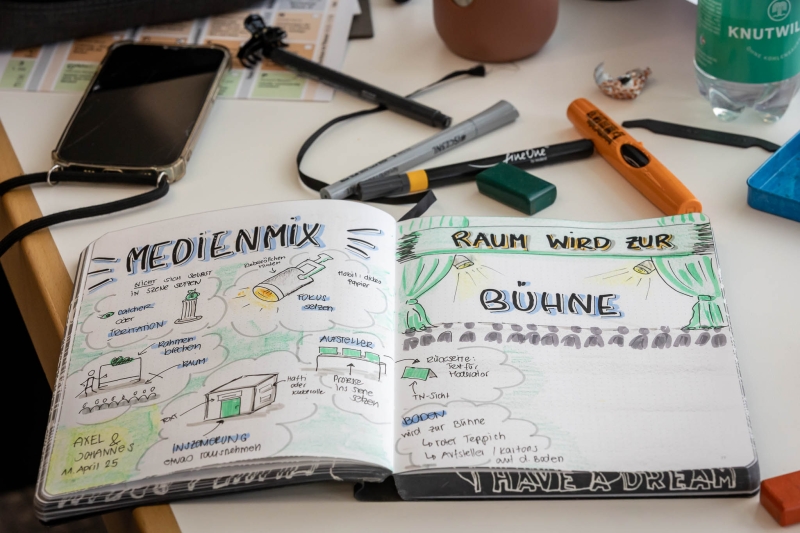 MEDIENMIX
NICHT SICH SELBST
IN SZENE SETZEN
oder
IRRITATION
FOKUS
setzen
Papier
Rahmen
brechen
RAUM
AUFSTELLER
Prozesse
ins Szene
setzen
TEXT
oder
INSZENIERUNG
etwas rausnehmen
AXEL &
JOHANNES
11. April 25
RAUM WIRD ZUR
BÜHNE
Rückseite:
Text für
Moderator
TN-Sicht
BODEN
wird zur Bühne
roter Teppich
Aufsteller / Kartons
auf d. Boden
I HAVE A DREAM
FineOne
KNUTWIL